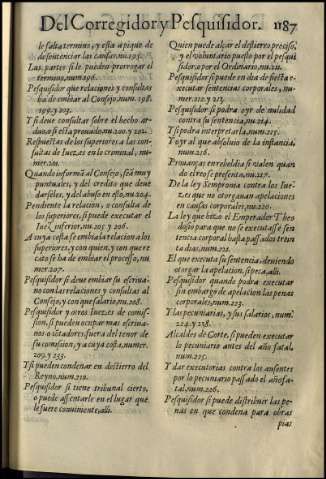 Del Corregidor y Pesquisidor. 1187
le falta termino, y esta a pique de
desentenciar las causas, nu. 195.
Las partes si le pueden prorrogar el
termino, num. 196.
Pesquisidor que relaciones y consultas
ha de embiar al Consejo, num. 198.
199. y 205.
Y si deve consultar sobre el hecho arduo
si esta provado, nu. 200. y 202.
Respuestas de los superiores a las consultas
de Iuezes en lo criminal, numer.
201.
Quando informã al Consejo, seã muy
puntuales, y del credito que deve
darseles, y del abuso en esto, nu. 204.
Pendiente la relacion, o consulta de
los superiores, si puede executar el
Iuez inferior, nu. 205. y 206.
A cuya costa se embia la relacion a los
superiores, y con quien, y con que recato
se ha de embiar el processo, numer.
207.
Pesquisidor si deve embiar su escrivano
con las relaciones y consultas al
Consejo, y con que salario, nu. 208.
Pesquisidor y otros Iuezes de comission,
si pueden echar mas escrivanos
o oficiales, fuera del tenor de
su comission, y a cuya costa, numer.
209. y 233.
Y si pueden condenar en destierro del
Reyno, num. 210.
Pesquisidor si tiene tribunal cierto,
o puede assentarle en el lugar que
le fuere conviniente, alli.
Quien puede alçar el destierro preciso,
y el voluntario puesto por el pesquisidor
o por el Ordinario, nu. 211.
Pesquisidor si puede en dia de fiesta executar
sentencias corporales, numer.
212. y 213.
Pesquisidor si podrà oyr de nulidad
contra su sentencia, nu. 214.
Y si podrà interpretarla, num. 215.
Y oyr al que absolvio de la instancia,
num. 216.
Provanças en rebeldia si valen quan
do el reo se presenta, nu. 217.
De la ley Sempronia contra los Iuezes
que no otorgavan apelaciones
en causas corporales, nu. 220.
La ley que hizo el Emperador Theodosio
para que no se executasse sentencia
corporal hasta passados treinta
dias, num. 221.
El que executa su sentencia, deviendo
otorgar la apelacion, si peca, alli.
Pesquisidor quando podrà executar
sin embargo de apelacion las penas
corporales, num. 223.
Y las pecuniarias, y sus salarios, num.
224. y 238.
Alcaldes de Corte, si pueden executar
lo pecuniario antes del año fatal,
num. 225.
Y dar executorias contra los ausentes
por lo pecuniario passado el año fatal,
num. 226.
Pesquisidor si puede distribuir las penas
en que condena para obras
pias